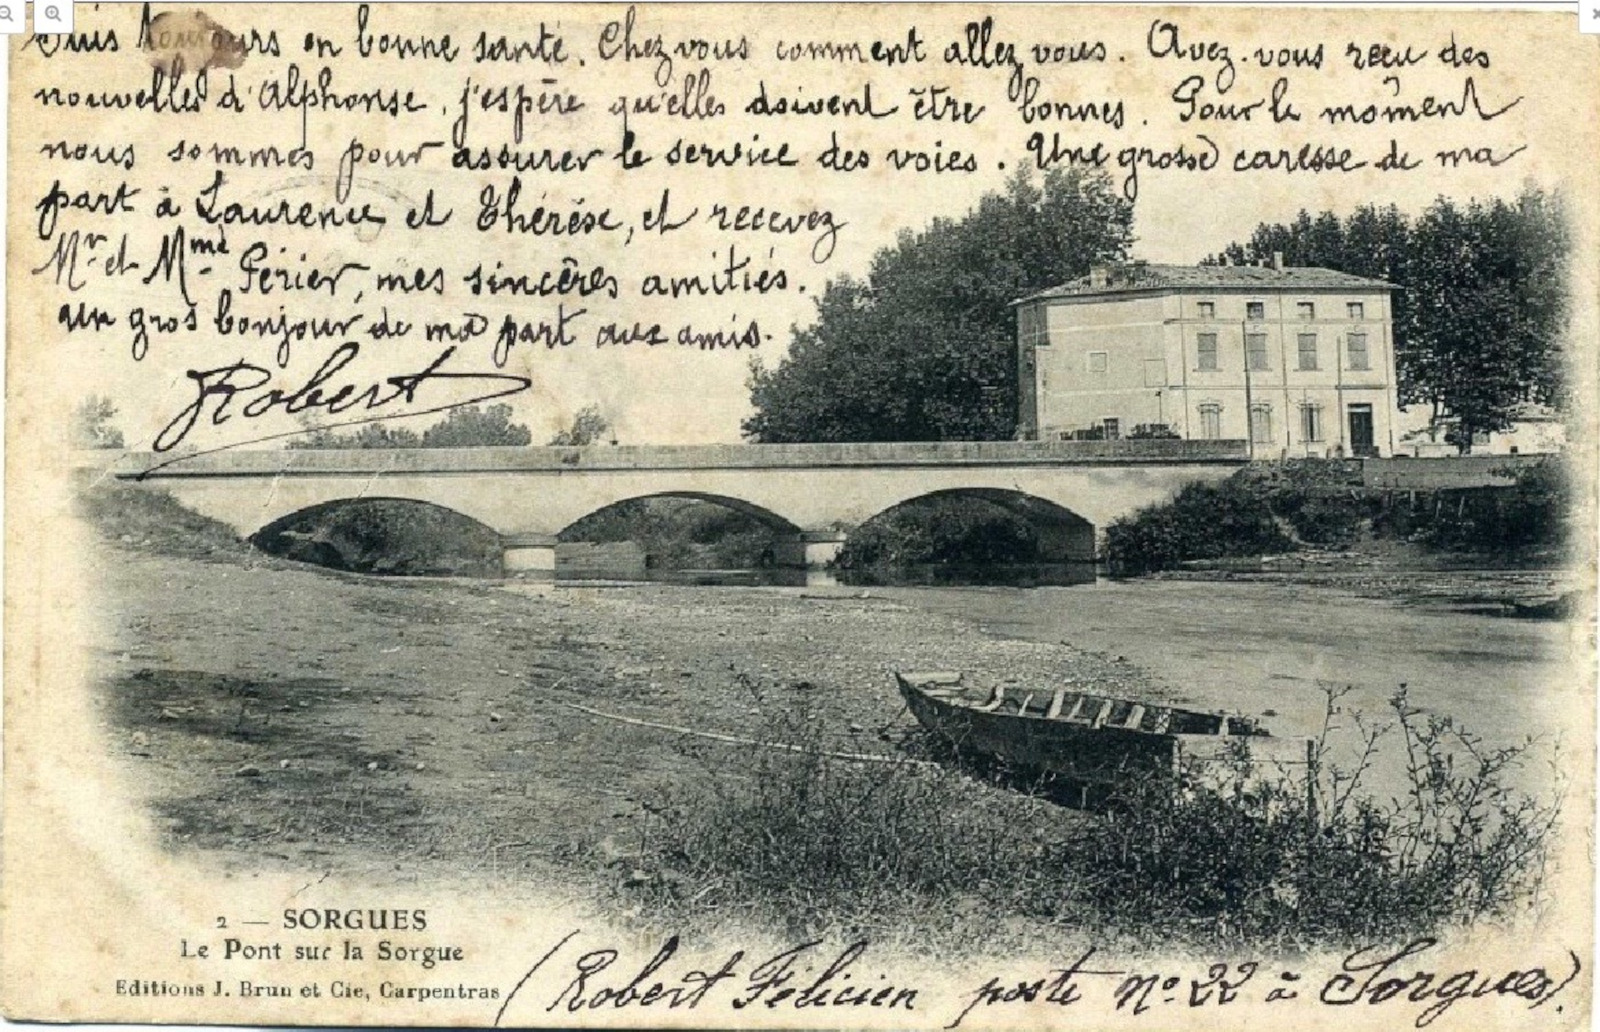 Suis toujours en bonne santé. Chez vous comment allez vous. Avez-vous reçu des
nouvelles d'Alphonse, j'espère qu'elles doivent être bonnes. Pour le môment
nous sommes pour assurer le service des voies. Une grosse caresse de ma
part à Laurence et Thérèse, et recevez
Mr. et Mme Périer, mes sincères amitiés.
un gros bonjour de ma part aux amis.
Robert
2 — SORGUES
Le Pont sur la Sorgue
Editions J. Brun et Cie, Carpentras
(Robert Félicien poste No. 22 à Sorgues).